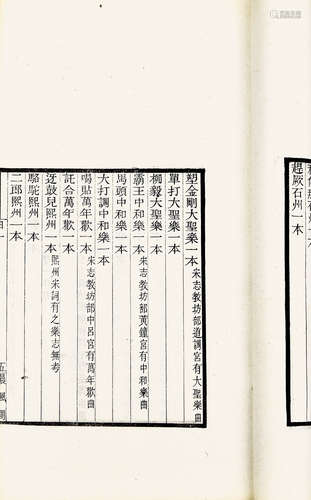 趕厥石州一本
塑金剛大聖樂一本 宋志教坊部道調宮有大聖樂曲
單打大聖樂一本
柳毅大聖樂一本
霸王中和樂一本 宋志教坊部黃鐘宮有中和樂曲
馬頭中和樂一本
大打調中和樂一本
喝貼萬年歡一本 宋志教坊部中呂宮有萬年歡曲
託合萬年歡一本
迓鼓兒熙州一本 熙州宋詞有之樂志無考
駱駝熙州一本
二郎熙州一本